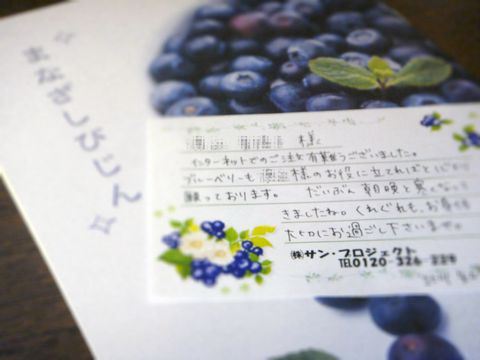 まなざしぶじん
様
インターネットでのご注文有難うございました。
ブルーベリーも 様のお役に立てればと
願っております。 だいぶん 朝晩と寒く
きましたね。くれぐれも、お身体
大切にお過ごし下さいませ。
㈱サン・プロジェクト
TEL 0120-326-